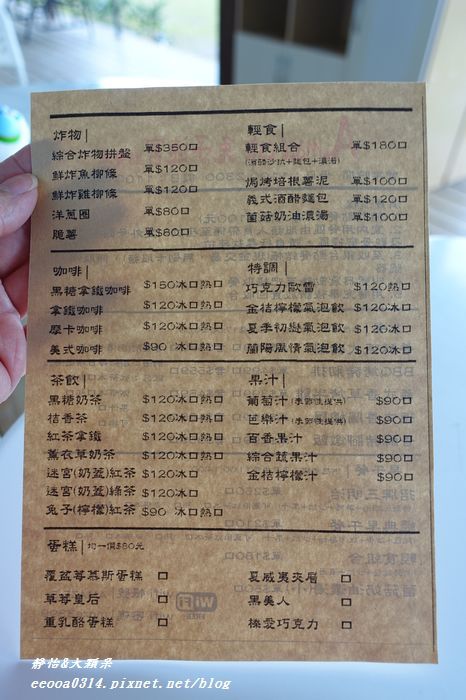 炸物|
綜合炸物拼盤 單$350口
鮮炸魚柳條 單$120口
鮮炸雞柳條 單$120口
洋蔥圈 單$80口
脆薯 單$80口
輕食|
輕食組合 單$180口
焗烤培根薯泥 單$100口
義式酒醋麵包 單$120口
菌菇奶油濃湯 單$100口
咖啡|
黑糖拿鐵咖啡 $150冰口熱口
拿鐵咖啡 $120冰口熱口
摩卡咖啡 $120冰口熱口
美式咖啡 $90 冰口熱口
特調|
巧克力歐蕾 $120熱口
金桔檸檬氣泡飲 $120冰口
夏季初戀氣泡飲 $120冰口
蘭陽風情氣泡飲 $120冰口
茶飲|
黑糖奶茶 $120冰口熱口
桔香茶 $120冰口熱口
紅茶拿鐵 $120冰口熱口
薰衣草奶茶 $120冰口熱口
迷宮(奶蓋)紅茶 $120冰口
迷宮(奶蓋)綠茶 $120冰口
兔子(檸檬)紅茶 $90 冰口熱口
果汁|
葡萄汁(季節性提供) $90口
芭樂汁(季節性提供) $90口
百香果汁 $90口
綜合蔬果汁 $90口
金桔檸檬汁 $90口
蛋糕|均一價$80元
覆盆莓慕斯蛋糕 口
草莓皇后 口
重乳酪蛋糕 口
夏威夷夾層 口
黑美人 口
榛愛巧克力 口
靜怡&大顆呆
eeooa0314.pixnet.net/blog